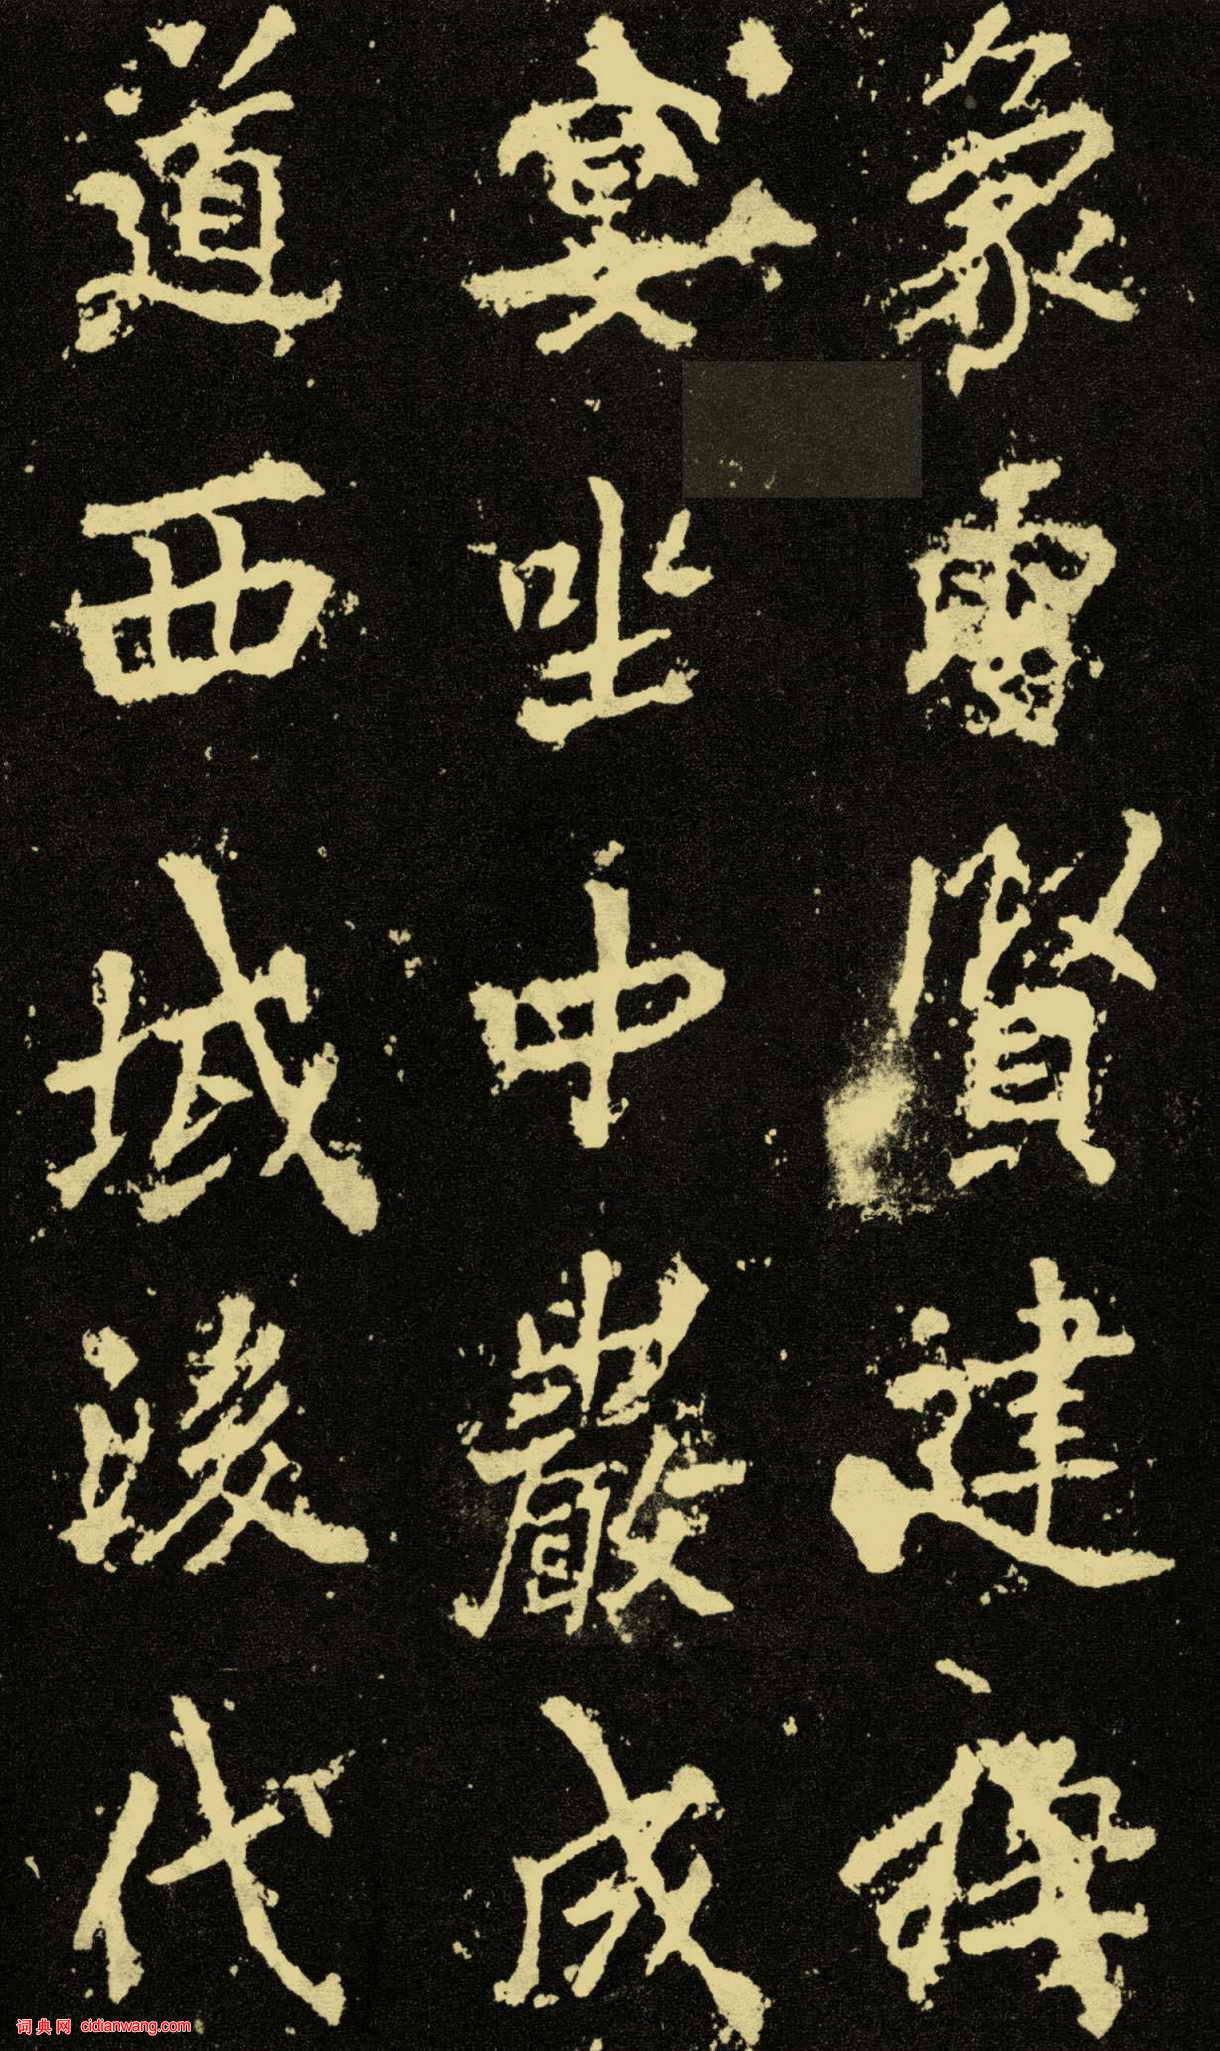 象雷賢建禪
宴坐中巖成
道西域後代
词典网 cidianwang.com